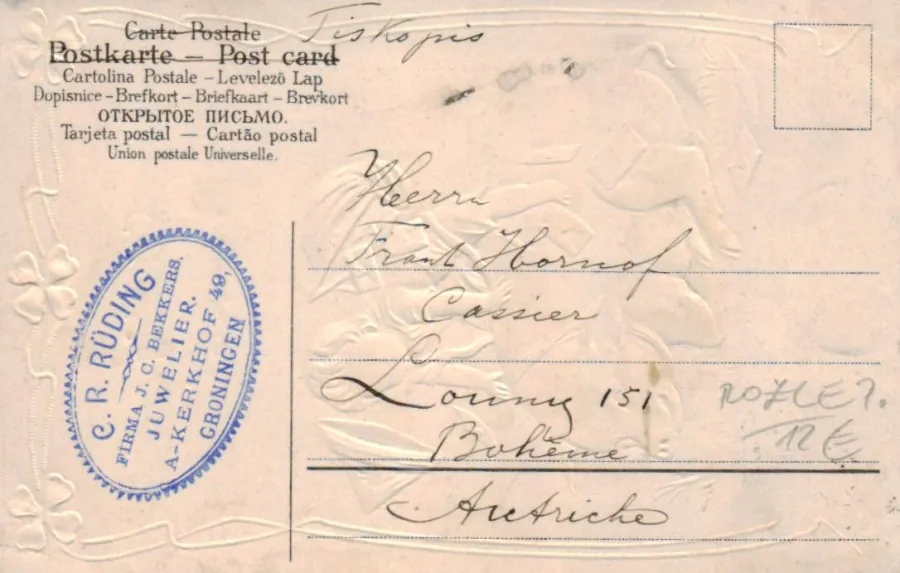 Tiskopis
Carte Postale
Postkarte — Post card
Cartolina Postale – Levelező Lap
Dopisnice – Brefkort – Briefkaart – Brevkort
ОТКРЫТОЕ ПИСЬМО.
Tarjeta postal — Cartão postal
Union postale Universelle.
Herrn
Frant Hornof
Cassier
Louny 151
Bohême
Autriche
C. R. RÜDING
FIRMA J. C. BEKKERS.
JUWELIER.
A-KERKHOF 49,
GRONINGEN
12 €